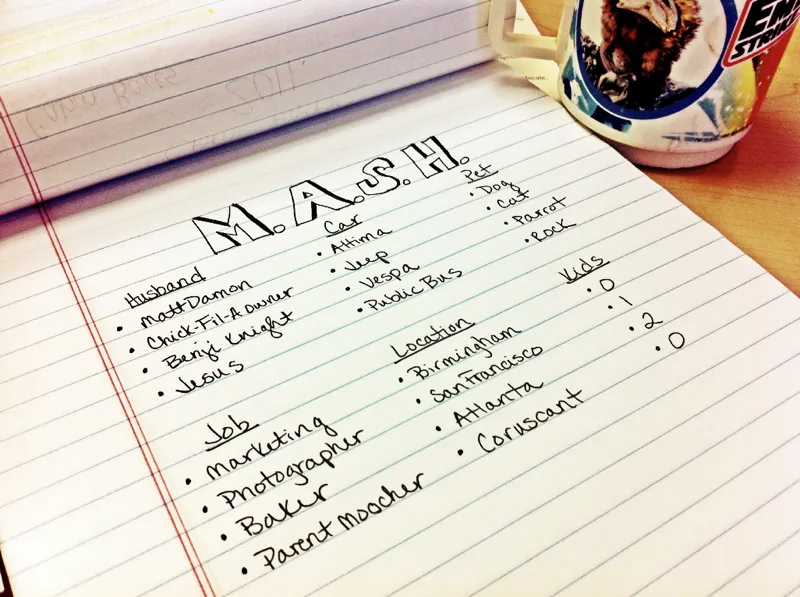 M.A.S.H.
Husband
• Matt Damon
• Chick-Fil-A owner
• Benji Knight
• Jesus
Car
• Altima
• Jeep
• Vespa
• Public Bus
Pet
• Dog
• Cat
• Parrot
• Rock
Job
• Marketing
• Photographer
• Baker
• Parent Moocher
Location
• Birmingham
• San Francisco
• Atlanta
• Coruscant
Kids
• 0
• 1
• 2
• 0
2011
STRIK